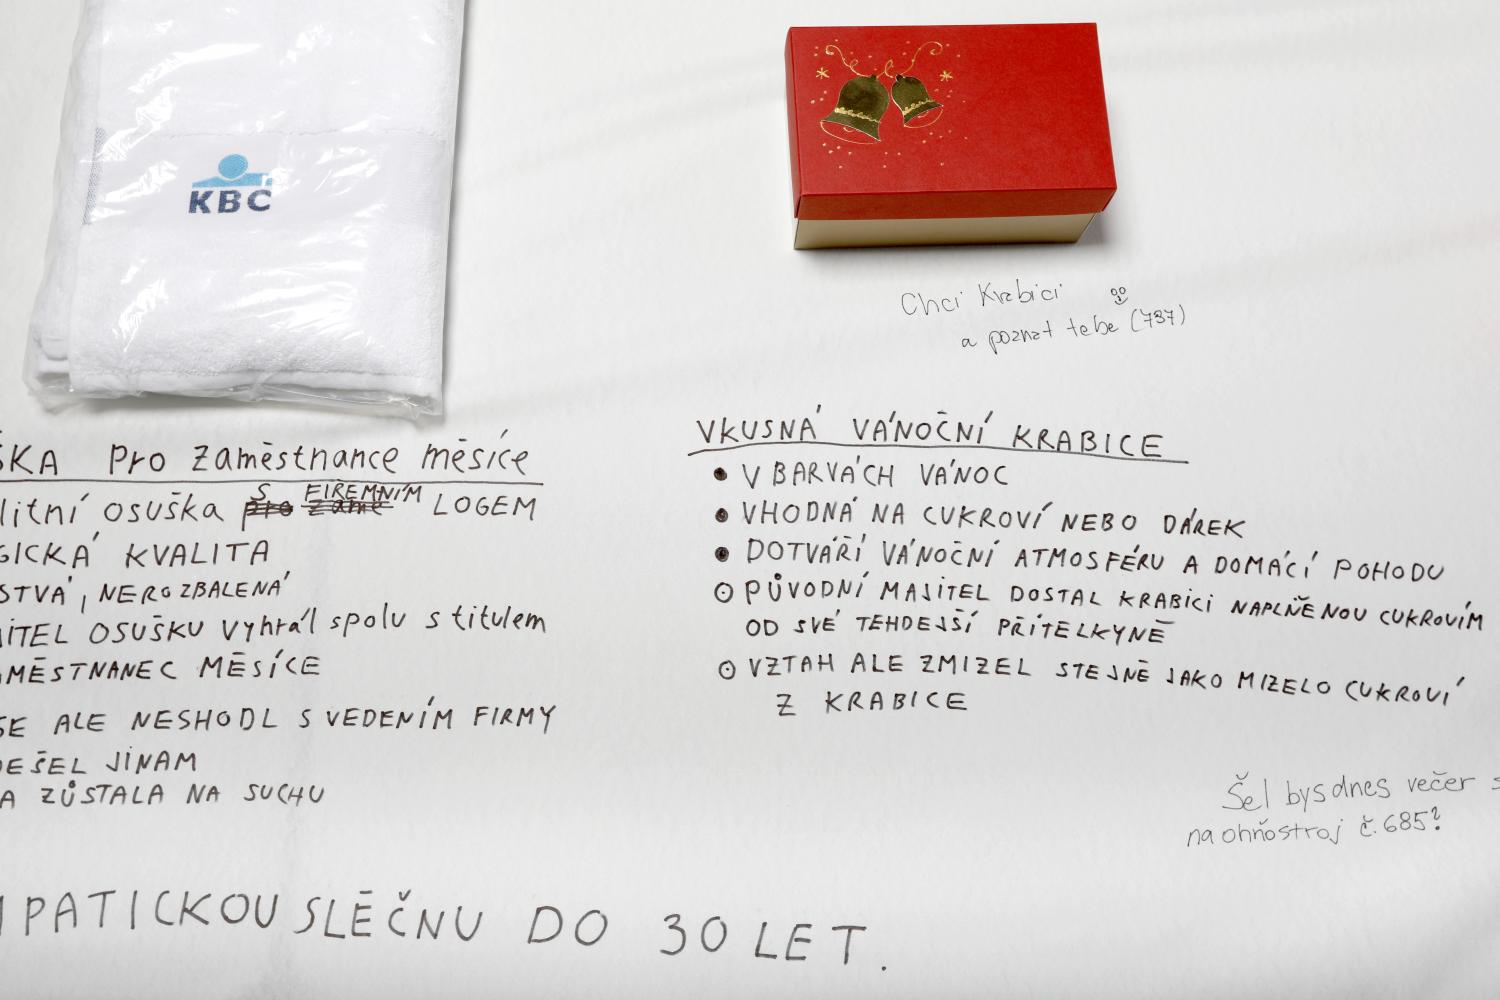 KBC
Chci Krabici
a poznat tebe (737)
ŠKA pro zaměstnance měsíce
litní osuška s FIREMNÍM LOGEM
GICKÁ KVALITA
STVÁ, NEROZBALENÁ
ITEL OSUŠKU vyhrál spolu s titulem
MĚSTNANEC MĚSÍCE
SE ALE NESHODL S VEDENÍM FIRMY
DEŠEL JINAM
A ZŮSTALA NA SUCHU
VKUSNÁ VÁNOČNÍ KRABICE
• V BARVÁCH VÁNOC
• VHODNÁ NA CUKROVÍ NEBO DÁREK
• DOTVÁŘÍ VÁNOČNÍ ATMOSFÉRU A DOMÁCÍ POHODU
⊙ PŮVODNÍ MAJITEL DOSTAL KRABICI NAPLNĚNOU CUKROVÍM
OD SVÉ TEHDEJŠÍ PŘÍTELKYNĚ
⊙ VZTAH ALE ZMIZEL STEJNĚ JAKO MIZELO CUKROVÍ
Z KRABICE
Šel bys dnes večer s
na ohňostroj č. 685?
PATICKOU SLEČNU DO 30 LET.